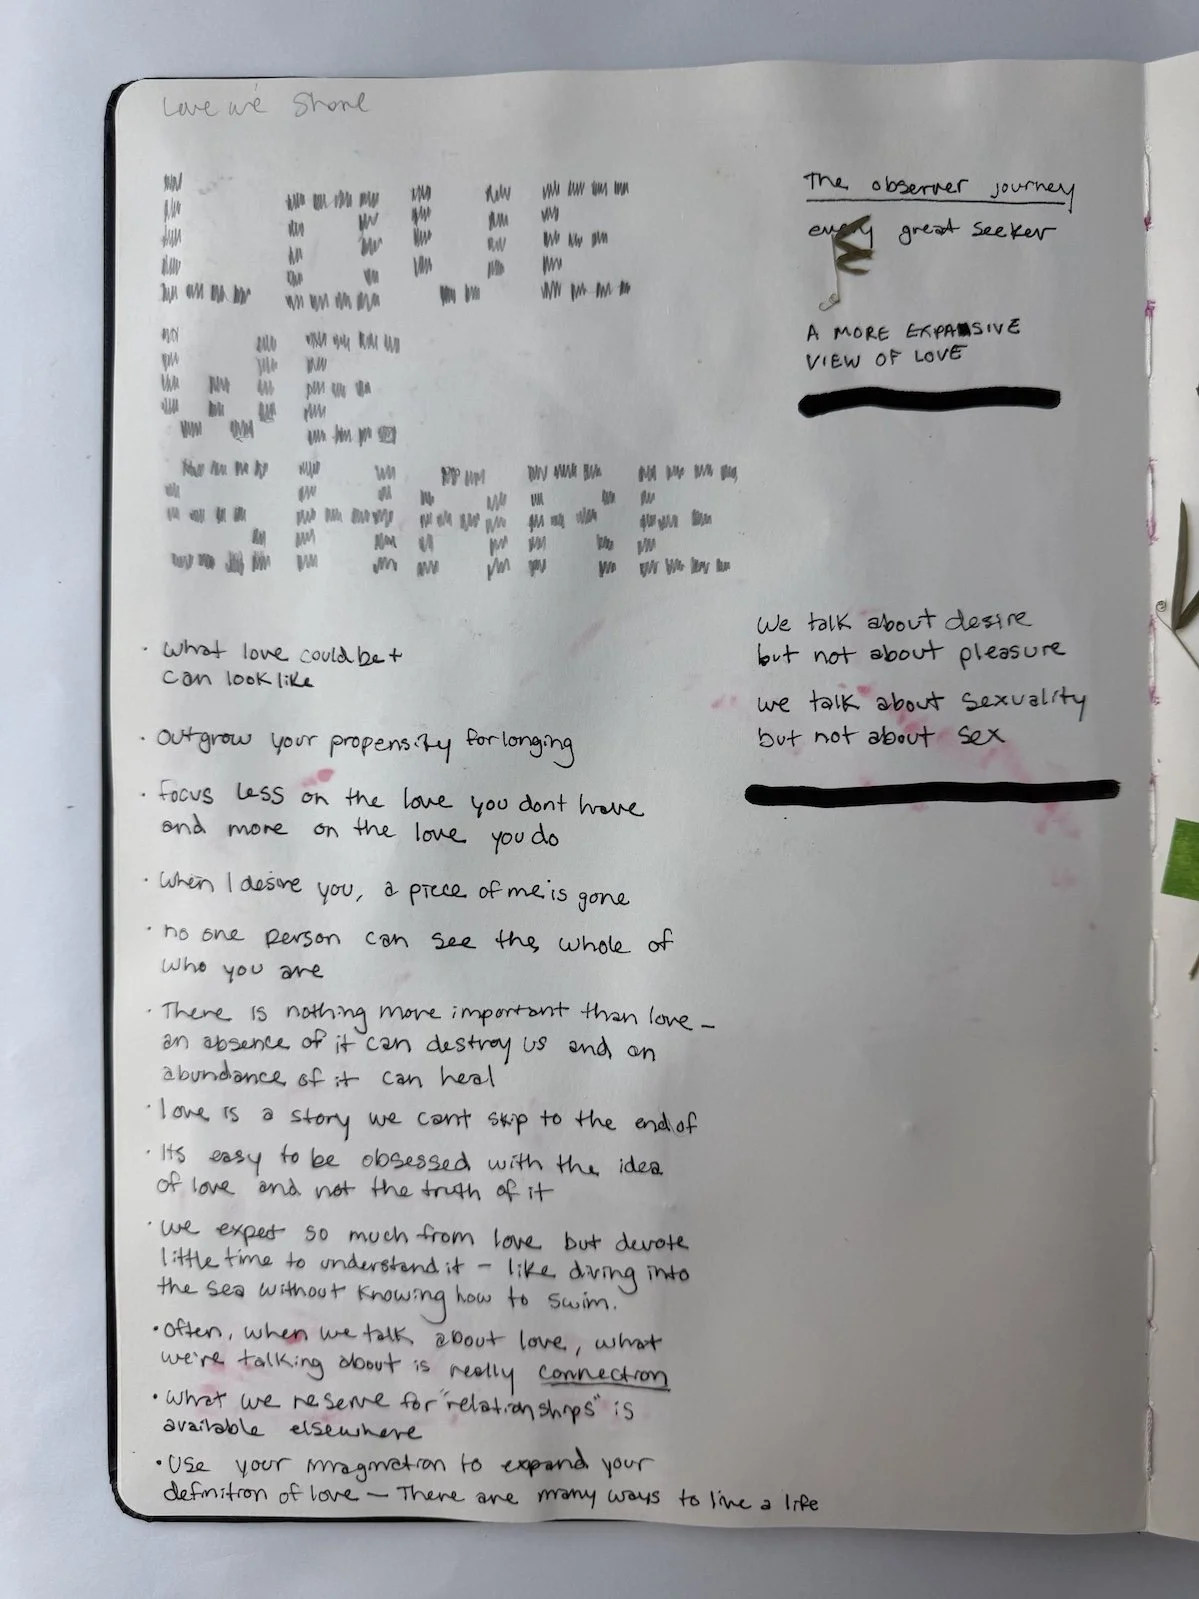 Love we share
LOVE
WE
SHARE
The observer journey
every great seeker
A MORE EXPANSIVE
VIEW OF LOVE
we talk about desire
but not about pleasure
we talk about sexuality
but not about sex
· what love could be +
can look like
· Outgrow your propensity for longing
· focus less on the love you dont have
and more on the love you do
· when I desire you, a piece of me is gone
· no one person can see the whole of
who you are
· There is nothing more important than love –
an absence of it can destroy us and an
abundance of it can heal
· love is a story we cant skip to the end of
· Its easy to be obsessed with the idea
of love and not the truth of it
· we expet so much from love but devote
little time to understand it – like diving into
the sea without knowing how to swim.
· Often, when we talk about love, what
we're talking about is really connection
· what we reserve for "relationships" is
available elsewhere
· Use your imagination to expand your
definition of love – There are many ways to live a life